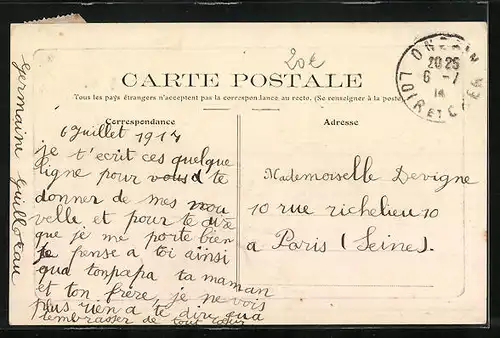 20€
CARTE POSTALE
Tous les pays étrangers n'acceptent pas la correspondance, au recto. (Se renseigner à la poste
Correspondance
6 juillet 1914
je t'ecrit ces quelque
ligne pour te
donner de mes nou
velle et pour te dire
que je me porte bien
je pense a toi ainsi
qua tonpapa ta maman
et ton frère, je ne vois
plus rien a te dire qua
tembrasser de tout cœur
Germaine Guilloteau
Adresse
Mademoiselle Devigne
10 rue richelieu 10
a Paris (Seine).
20 25
6 - 7
14
LOIR ET CHER